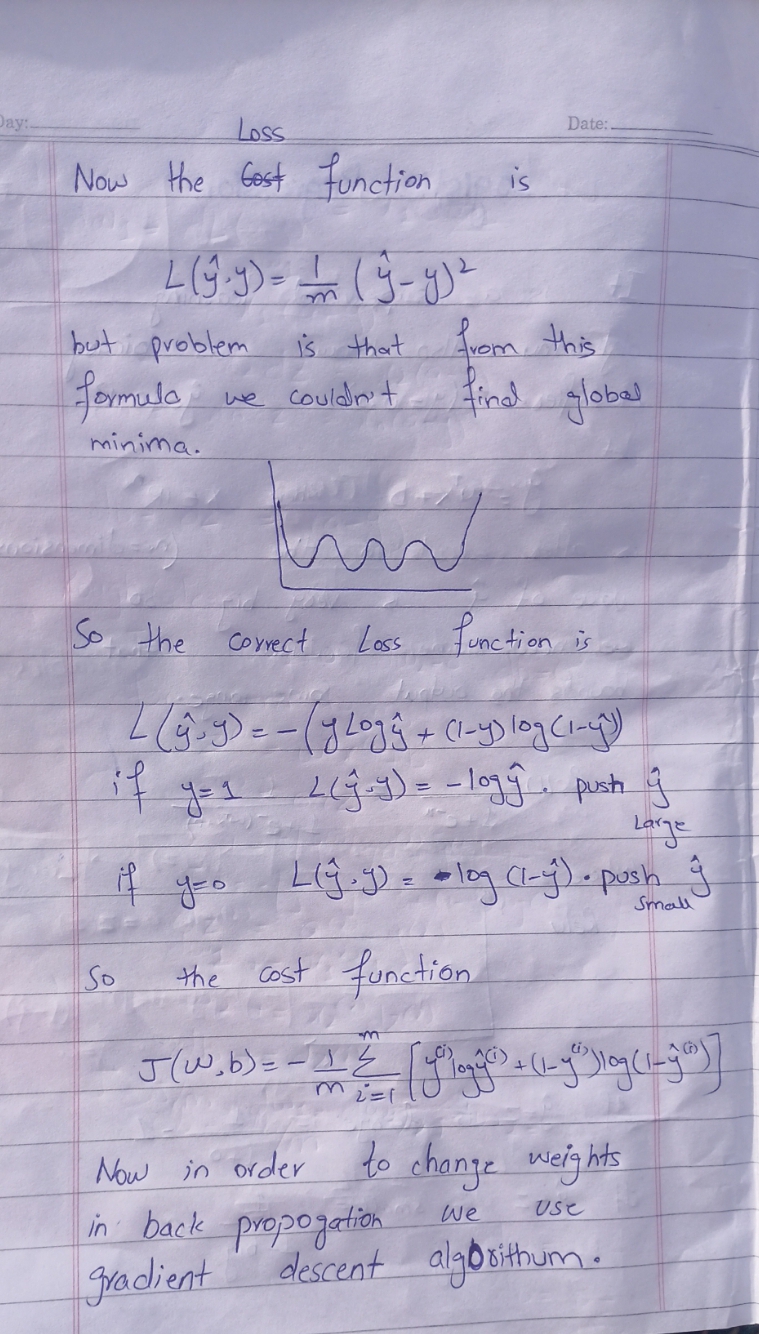 Day: Date:
Loss
Now the Cost function is
L(ŷ,y) = 1/m (ŷ-y)²
but problem is that from this
formula we couldn't find global
minima.
So the correct Loss function is
L(ŷ,y) = -(y Log ŷ + (1-y) log(1-ŷ))
if y=1 L(ŷ,y) = -log ŷ . push ŷ
Large
if y=0 L(ŷ,y) = -log (1-ŷ) . push ŷ
small
So the cost function
J(w,b) = - 1/m Σ_{i=1}^{m} [y⁽ⁱ⁾ log ŷ⁽ⁱ⁾ + (1-y⁽ⁱ⁾) log(1-ŷ⁽ⁱ⁾)]
Now in order to change weights
in back propogation we use
gradient descent algorithum.